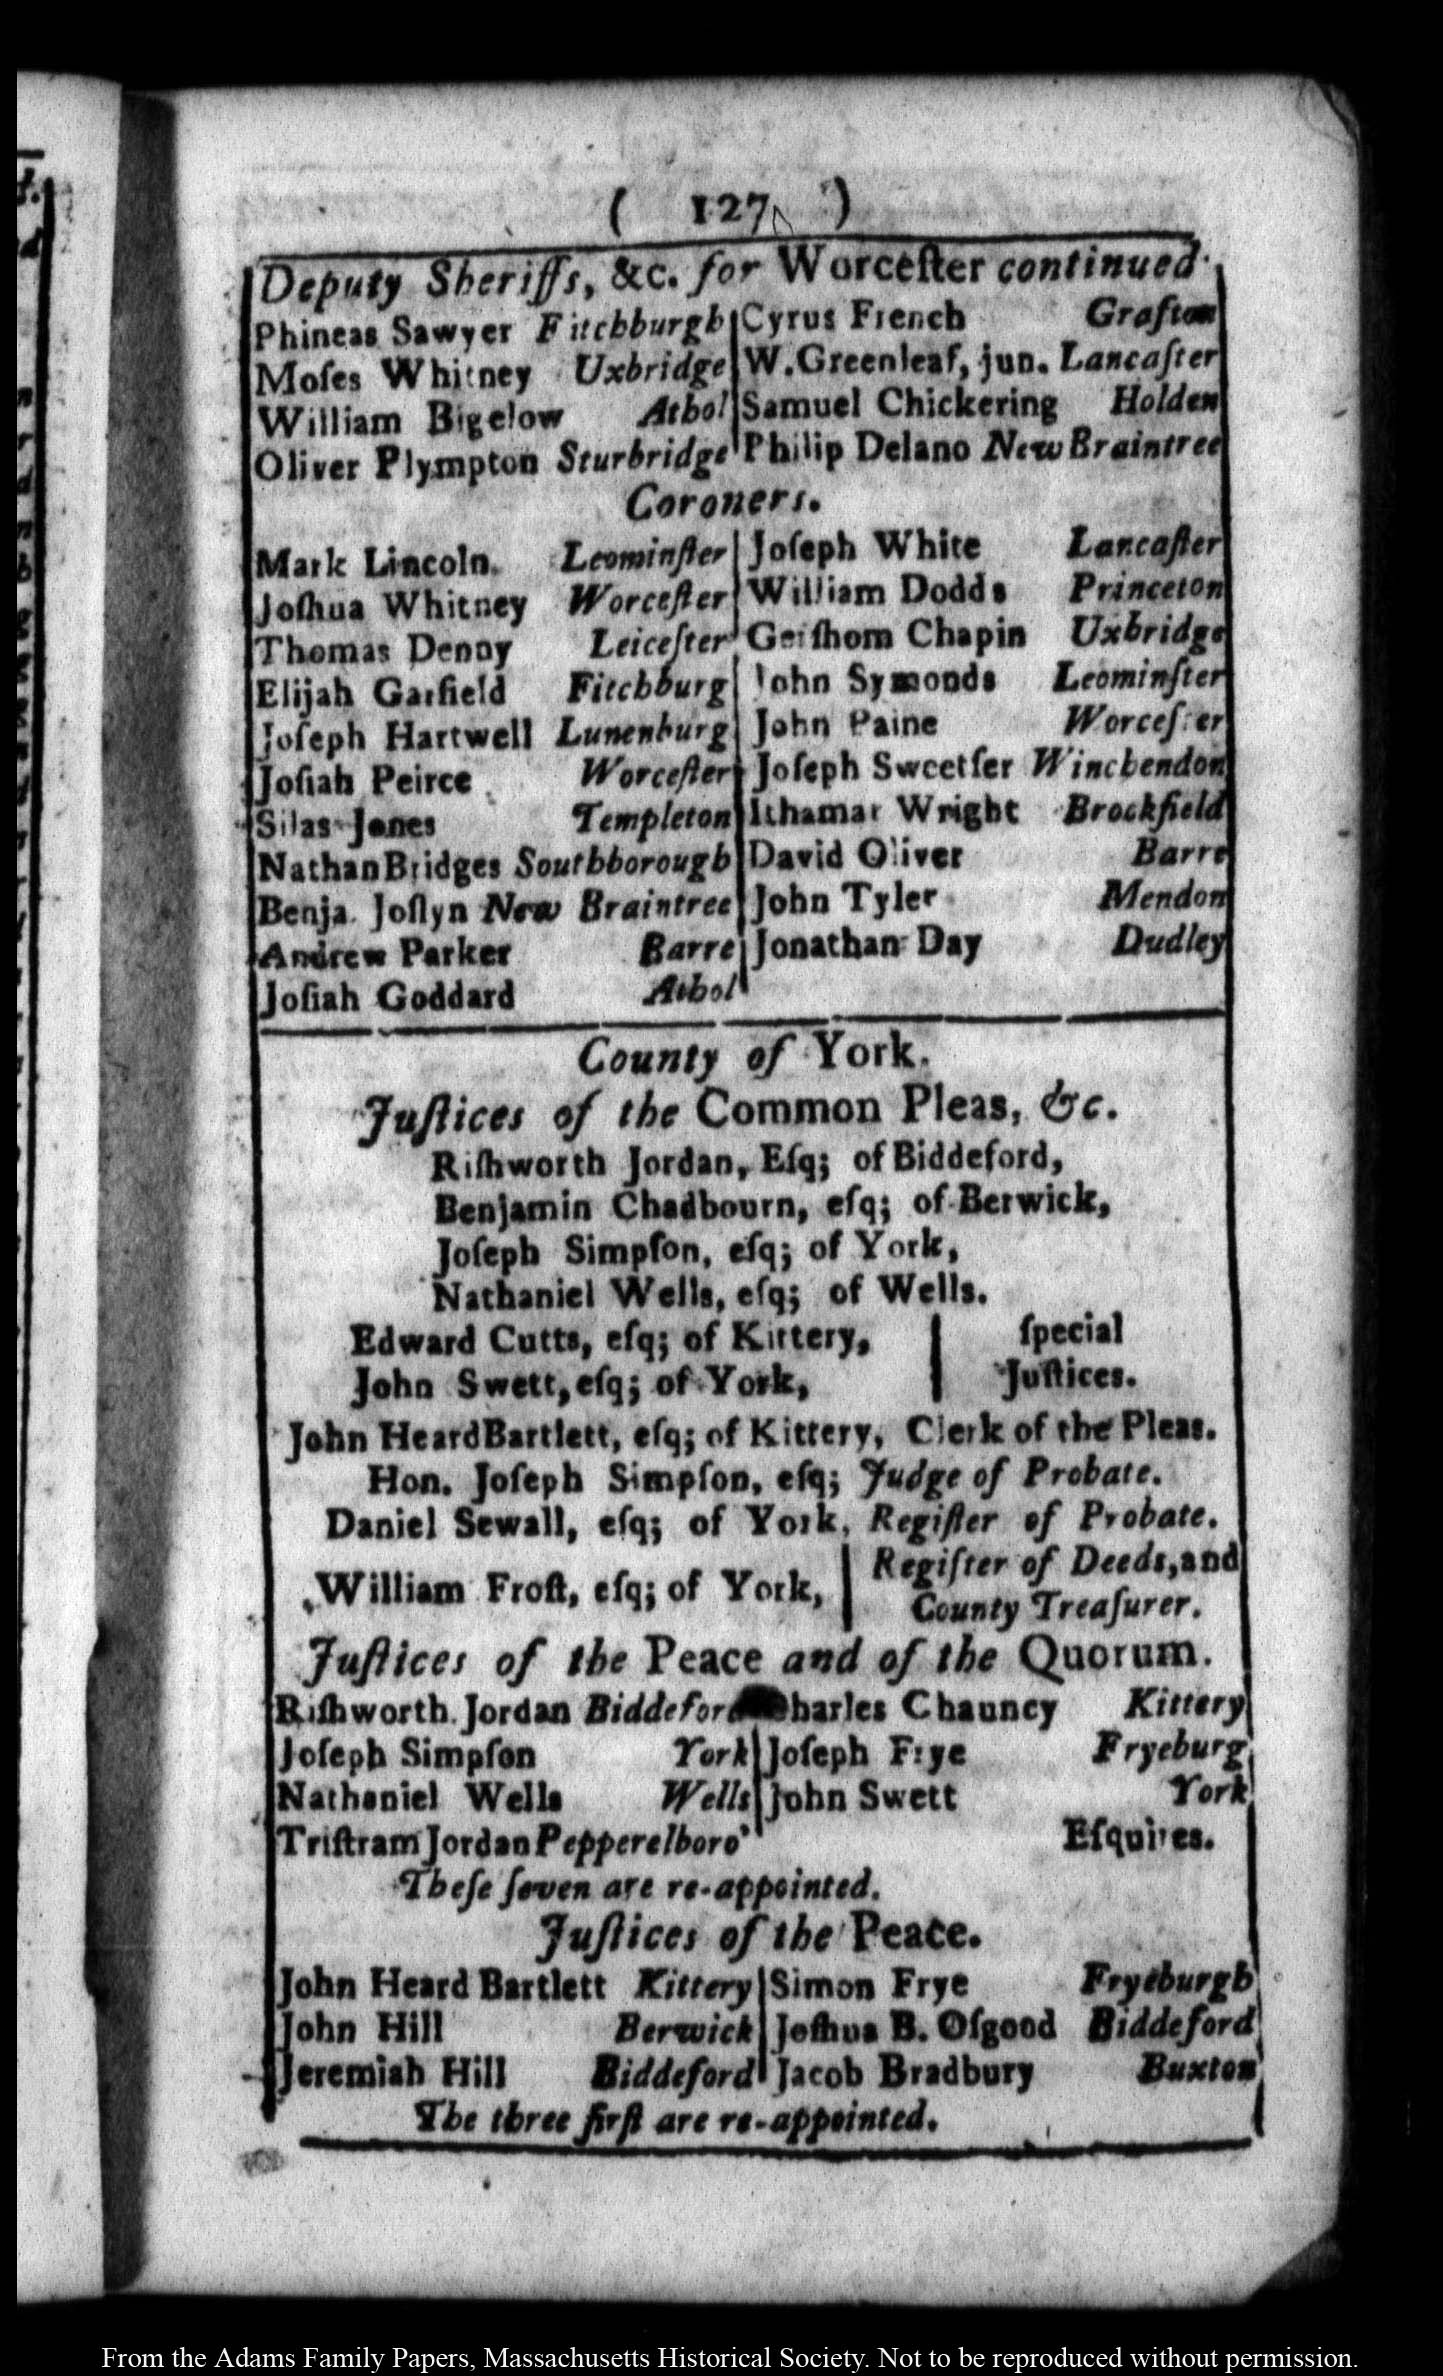 ( 127 )
Deputy Sheriffs, &c. for Worceſter continued.
Phineas Sawyer Fitchburgh
Moſes Whitney Uxbridge
William Bigelow Athol
Oliver Plympton Sturbridge
Cyrus French Grafton
W. Greenleaf, jun. Lancaſter
Samuel Chickering Holden
Philip Delano New Braintree
Coroners.
Mark Lincoln. Leominſter
Joſhua Whitney Worceſter
Thomas Denny Leiceſter
Elijah Garfield Fitchburg
Joſeph Hartwell Lunenburg
Joſiah Peirce Worceſter
Silas Jones Templeton
Nathan Bridges Southborough
Benja. Joſlyn New Braintree
Andrew Parker Barre
Joſiah Goddard Athol
Joſeph White Lancaſter
William Dodds Princeton
Gerſhom Chapin Uxbridge
John Symonds Leominſter
John Paine Worceſter
Joſeph Sweetſer Winchendon
Ithamar Wright Brookfield
David Oliver Barre
John Tyler Mendon
Jonathan Day Dudley
County of York.
Juſtices of the Common Pleas, &c.
Riſhworth Jordan, Eſq; of Biddeford,
Benjamin Chadbourn, eſq; of Berwick,
Joſeph Simpſon, eſq; of York,
Nathaniel Wells, eſq; of Wells.
Edward Cutts, eſq; of Kittery, | ſpecial
John Swett, eſq; of York, | Juſtices.
John Heard Bartlett, eſq; of Kittery, Clerk of the Pleas.
Hon. Joſeph Simpſon, eſq; Judge of Probate.
Daniel Sewall, eſq; of York, Regiſter of Probate.
William Froſt, eſq; of York, | Regiſter of Deeds, and
County Treaſurer.
Juſtices of the Peace and of the Quorum.
Riſhworth Jordan Biddeford
Joſeph Simpſon York
Nathaniel Wells Wells
Triſtram Jordan Pepperelboro'
Charles Chauncy Kittery
Joſeph Frye Fryeburg
John Swett York
Eſquires.
Theſe ſeven are re-appointed.
Juſtices of the Peace.
John Heard Bartlett Kittery
John Hill Berwick
Jeremiah Hill Biddeford
Simon Frye Fryeburgh
Joſhua B. Oſgood Biddeford
Jacob Bradbury Buxton
The three firſt are re-appointed.
From the Adams Family Papers, Massachusetts Historical Society. Not to be reproduced without permission.